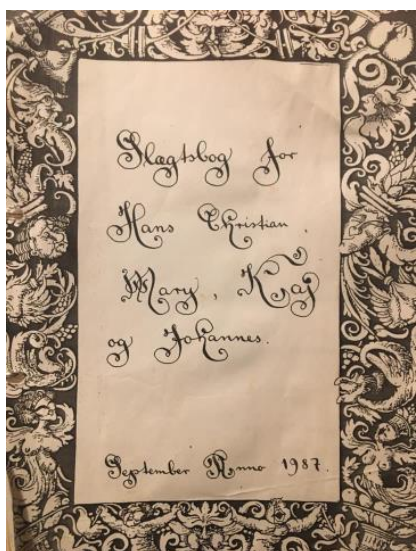 Slægtsbog for
Hans Christian,
Mary, Kaj
og Johannes.
September Anno 1987.